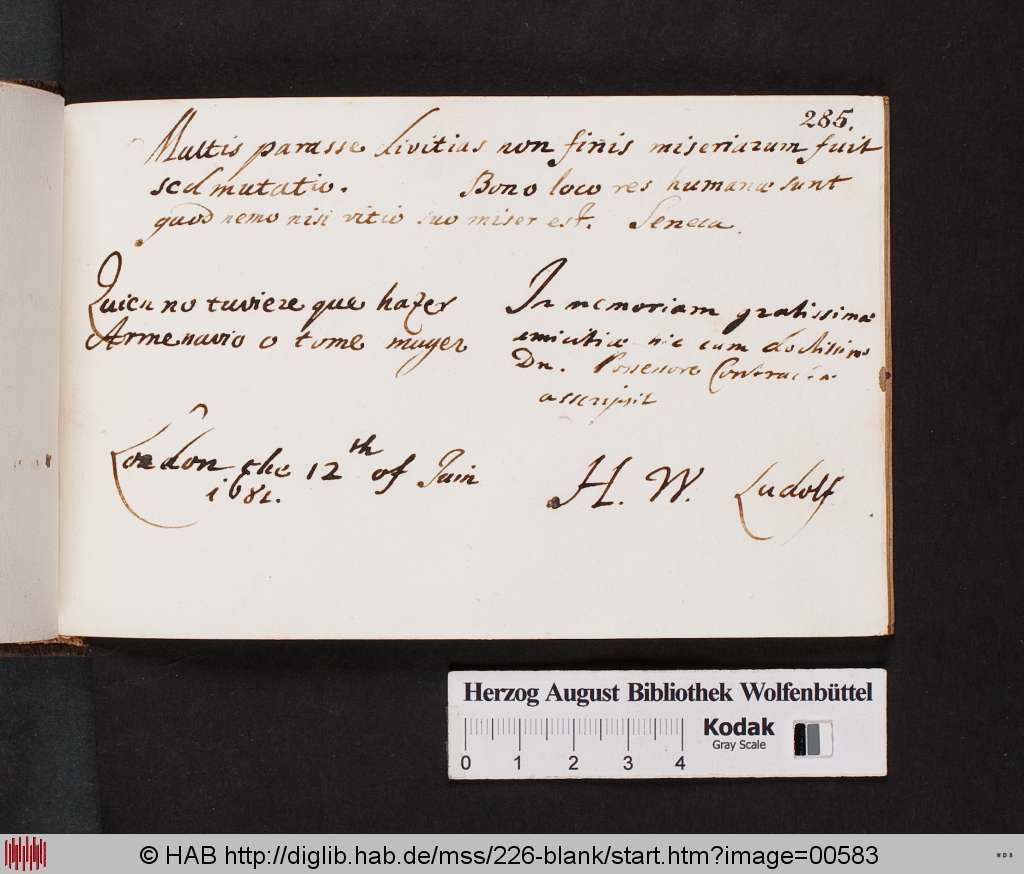 285.
Multis parasse divitias non finis miseriarum fuit
sed mutatio. Bono loco res humanæ sunt
quod nemo nisi vitio suo miser est. Seneca.
Quien no tuviere que hazer
Arme navio o tome muger
In memoriam gratissimæ
amicitiæ hic cum doctissimo
Dn. Possessore Contractæ
asscripsit
London the 12th of Juin
1681.
H. W. Ludolf.
Herzog August Bibliothek Wolfenbüttel
Kodak
Gray Scale
0 1 2 3 4
© HAB http://diglib.hab.de/mss/226-blank/start.htm?image=00583